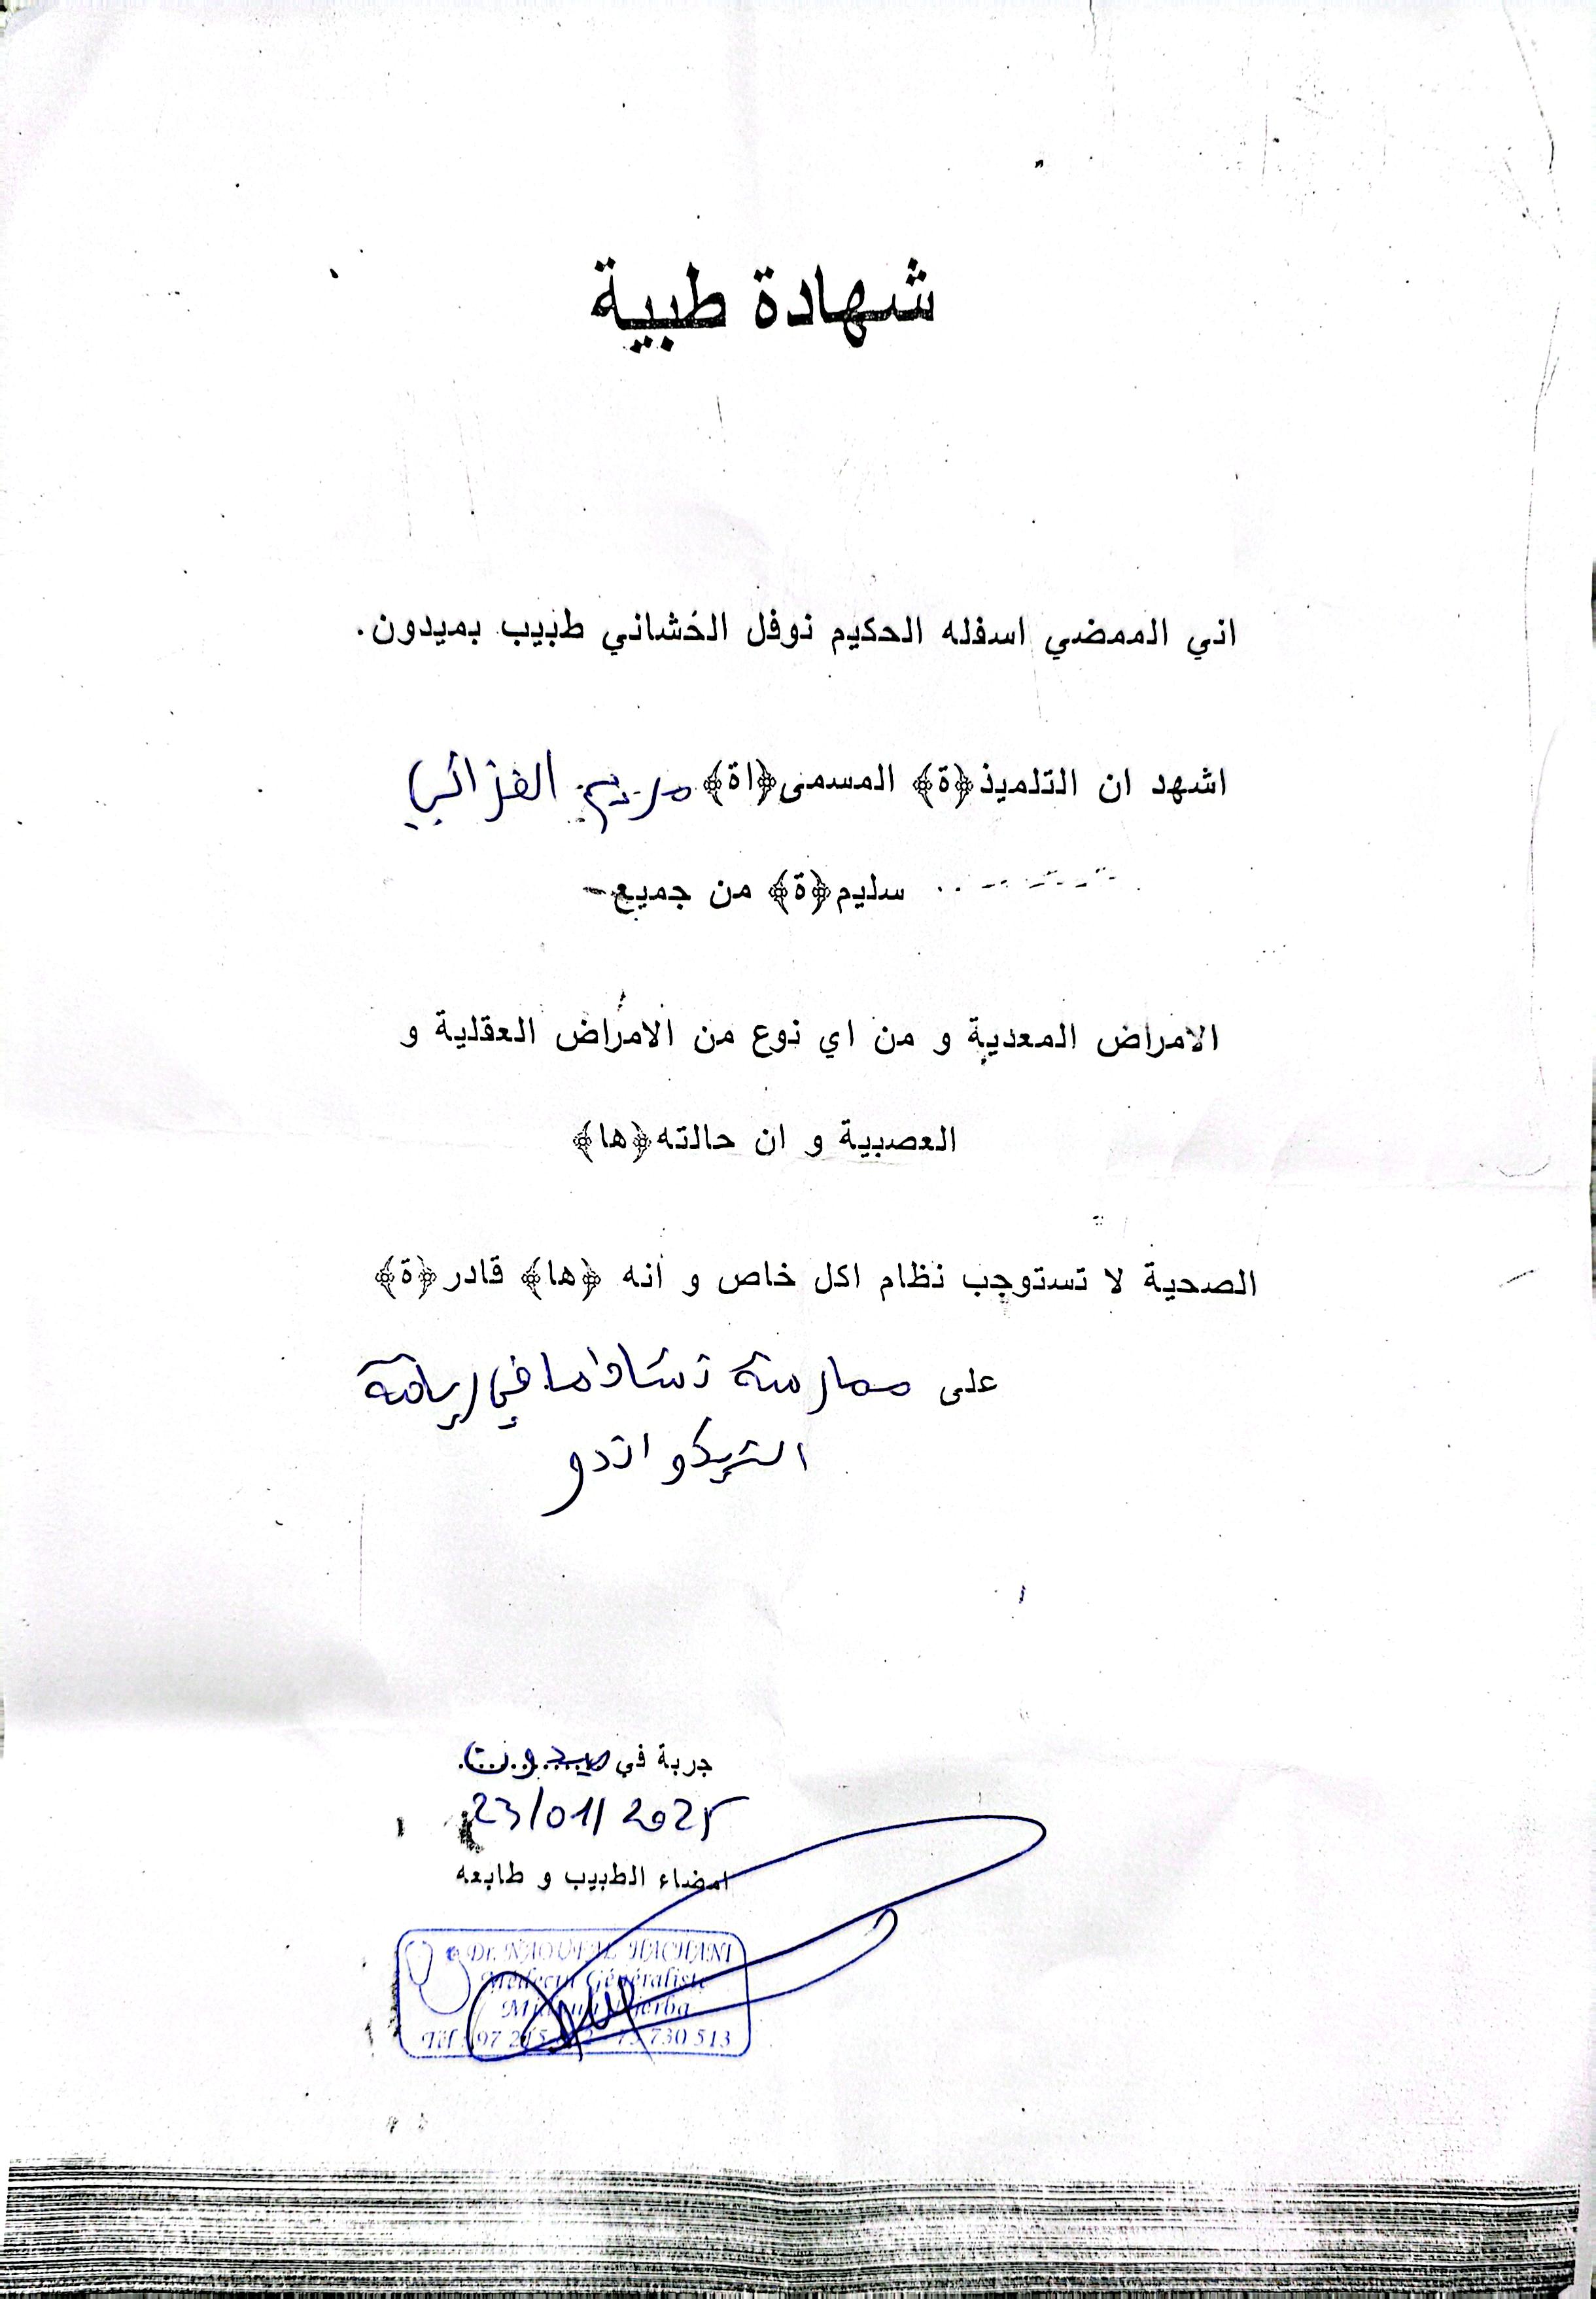 شهادة طبية
اني الممضي اسفله الحكيم نوفل الخشاني طبيب بميدون.
اشهد ان التلميذ(ة) المسمى(اة) مريم الغزالي
سليم(ة) من جميع
الامراض المعدية و من اي نوع من الامراض العقلية و
العصبية و ان حالته(ها)
الصحية لا تستوجب نظام اكل خاص و انه (ها) قادر(ة)
على ممارسة نشاطها في رياضة
التيكواندو
جربة في ميدون
23/01/2025
امضاء الطبيب و طابعه
Dr. NAOUFAL HACHANI
Médecin Généraliste
Djerba
Tél : 97 730 513